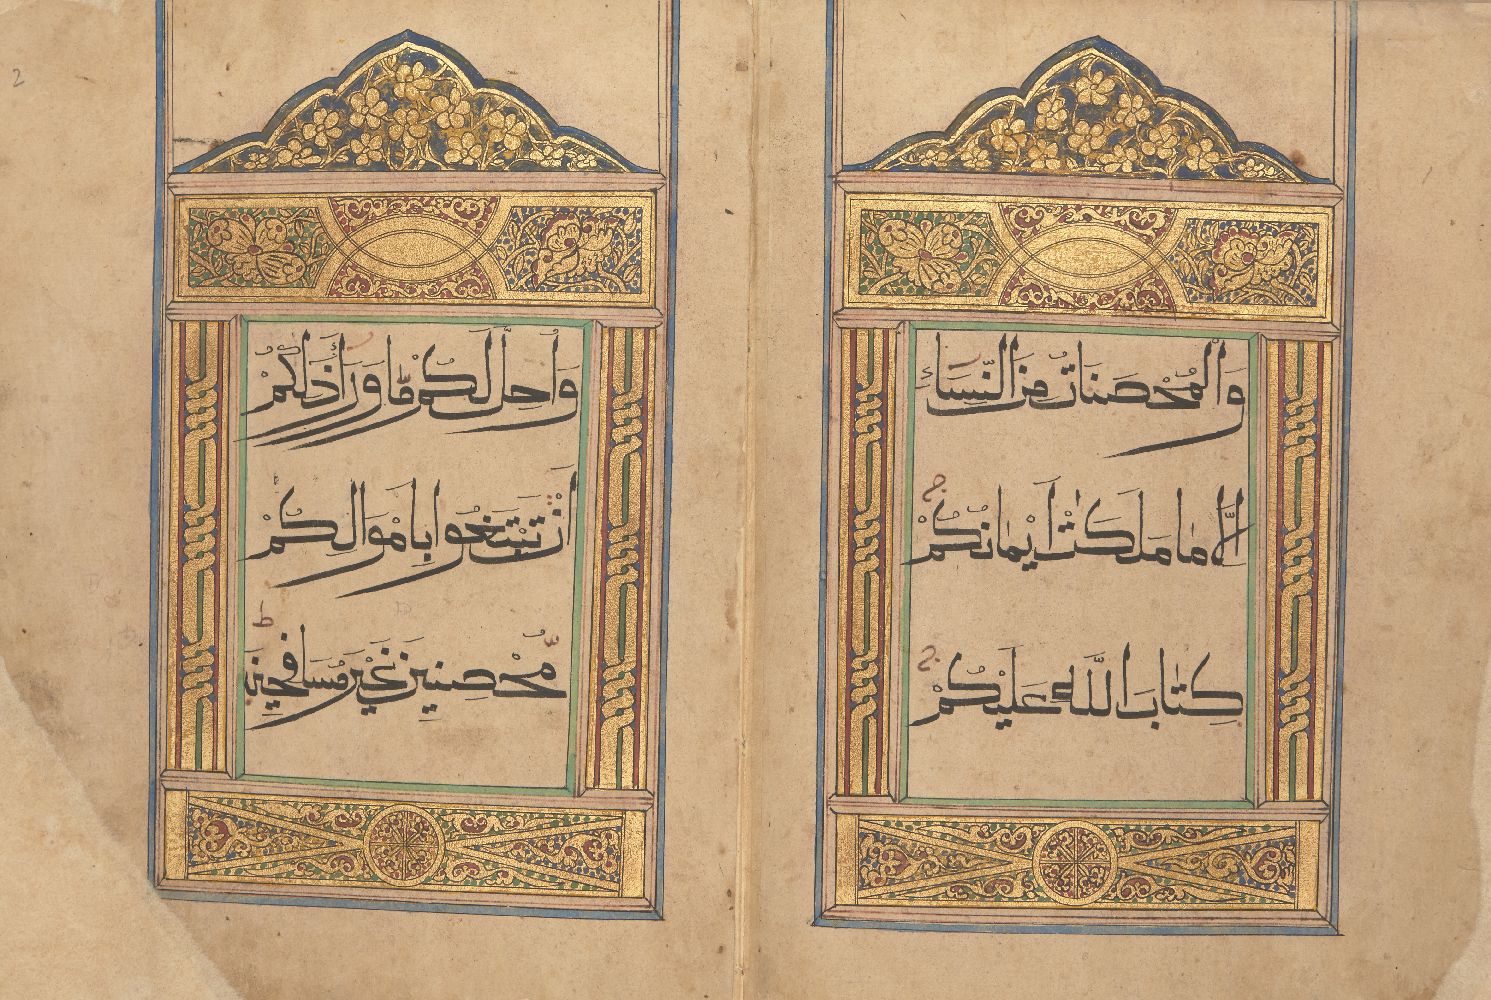 وَالْمُحْصَنَاتُ مِنَ النِّسَاءِ
اِلَّا مَا مَلَكَتْ اَيْمَانُكُمْ ج
كِتَابَ اللَّهِ عَلَيْكُمْ ج
وَاُحِلَّ لَكُمْ مَّا وَرَاءَ ذٰلِكُمْ
اَنْ تَبْتَغُوا بِاَمْوَالِكُمْ
مُّحْصِنِينَ غَيْرَ مُسَافِحِينَ ط
2